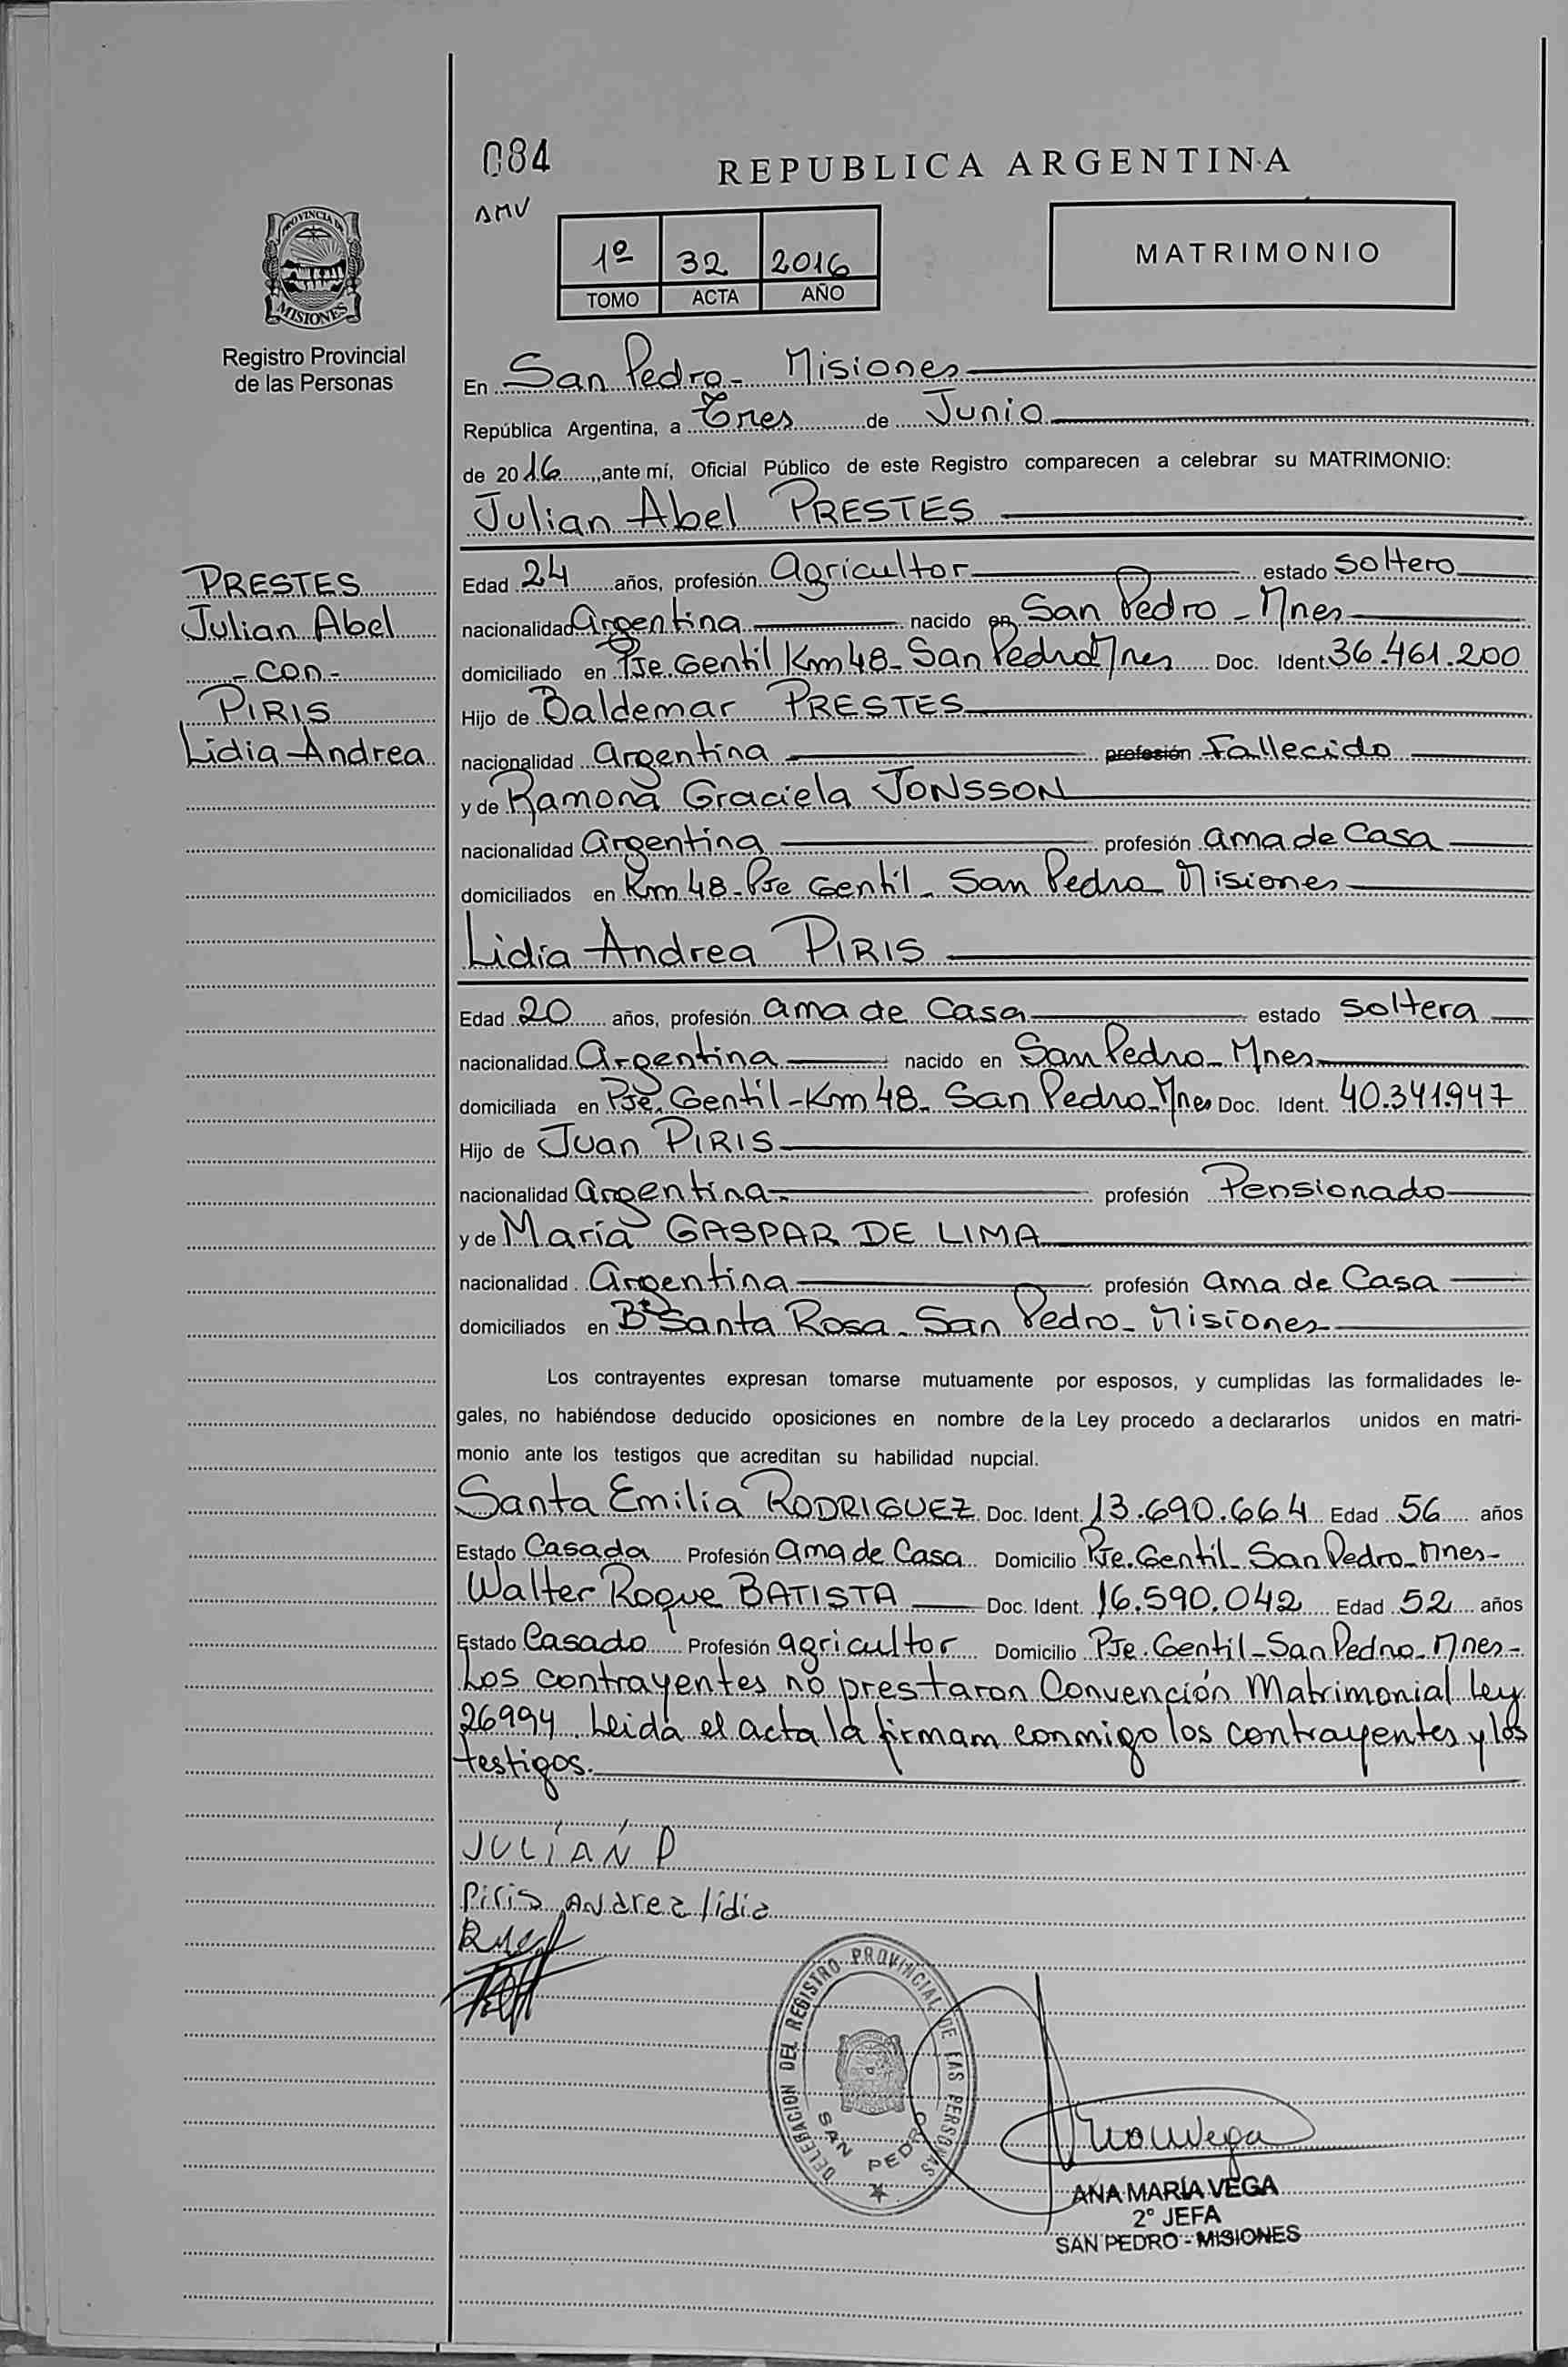 084
REPUBLICA ARGENTINA
AMV
1º 32 2016
TOMO ACTA AÑO
MATRIMONIO
PROVINCIA DE
MISIONES
Registro Provincial
de las Personas
En San Pedro - Misiones
República Argentina, a Tres de Junio
de 2016, ante mí, Oficial Público de este Registro comparecen a celebrar su MATRIMONIO:
Julian Abel PRESTES
PRESTES
Julian Abel
- con -
PIRIS
Lidia Andrea
Edad 24 años, profesión Agricultor estado Soltero
nacionalidad Argentina nacido en San Pedro - Mnes
domiciliado en Pje. Gentil Km 48 - San Pedro Mnes Doc. Ident. 36.461.200
Hijo de Baldemar PRESTES
nacionalidad Argentina profesión Fallecido
y de Ramona Graciela JONSSON
nacionalidad Argentina profesión ama de Casa
domiciliados en Km 48 - Pje Gentil - San Pedro Misiones
Lidia Andrea PIRIS
Edad 20 años, profesión ama de Casa estado Soltera
nacionalidad Argentina nacido en San Pedro - Mnes
domiciliada en Pje. Gentil - Km 48 - San Pedro - Mnes Doc. Ident. 40.341.947
Hijo de Juan PIRIS
nacionalidad Argentina profesión Pensionado
y de María GASPAR DE LIMA
nacionalidad Argentina profesión ama de Casa
domiciliados en Bº Santa Rosa - San Pedro - Misiones
Los contrayentes expresan tomarse mutuamente por esposos, y cumplidas las formalidades le-
gales, no habiéndose deducido oposiciones en nombre de la Ley procedo a declararlos unidos en matri-
monio ante los testigos que acreditan su habilidad nupcial.
Santa Emilia RODRIGUEZ Doc. Ident. 13.690.664 Edad 56 años
Estado Casada Profesión ama de Casa Domicilio Pje. Gentil - San Pedro - Mnes -
Walter Roque BATISTA Doc. Ident. 16.590.042 Edad 52 años
Estado Casado Profesión agricultor Domicilio Pje. Gentil - San Pedro - Mnes -
Los contrayentes no prestaron Convención Matrimonial Ley
26994. Leida el acta la firmam conmigo los contrayentes y los
testigos.
JULIÁN P
Piris Andrea lidia
DELEGACION DEL REGISTRO PROVINCIAL DE LAS PERSONAS
SAN PEDRO
ANA MARÍA VEGA
2° JEFA
SAN PEDRO - MISIONES